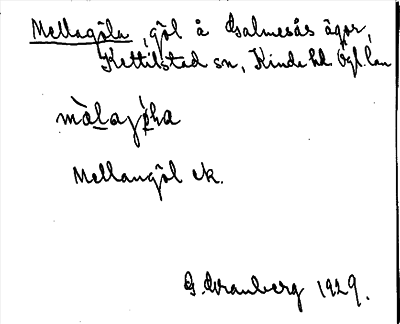 Mellagöla, göl å Galmesås ägor,
Kettilstad sn, Kinda hd. Ögl. län
Mellangöl ek.
G. Franberg 1929.